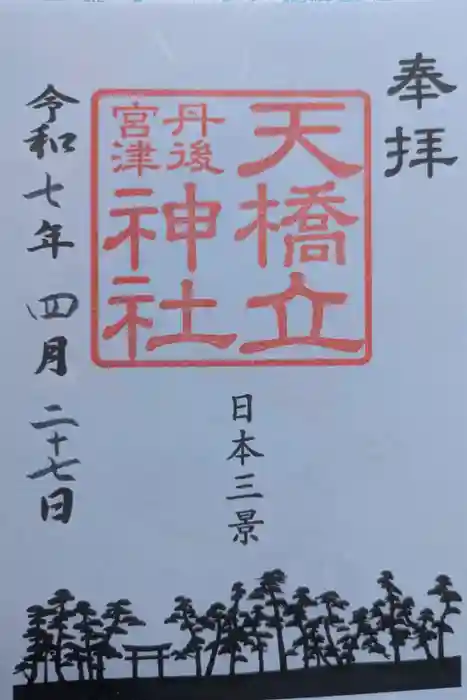 奉拝
天橋立
丹後
宮津
神社
日本三景
令和七年 四月 二十七日